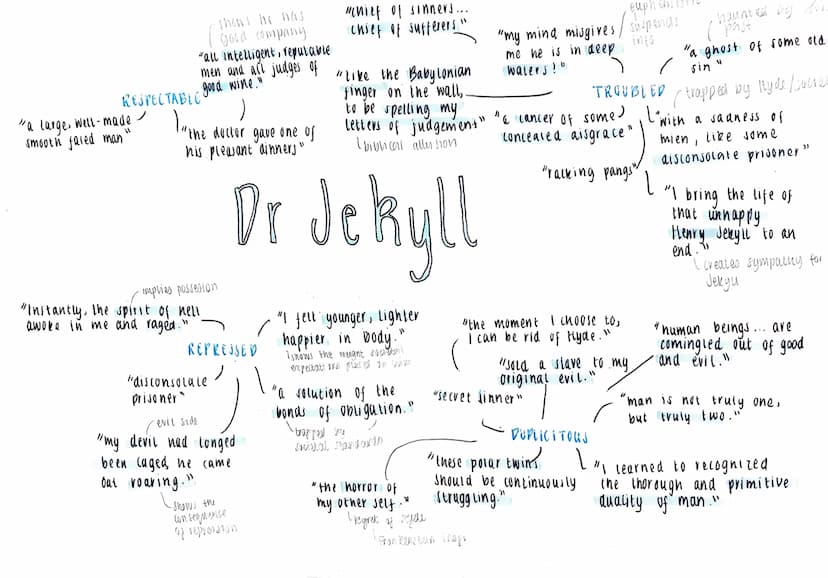 shows he has
good company
"all intelligent, reputable
men and all judges of
good wine."
RESPECTABLE
"a large, well-made
smooth faced man"
"the doctor gave one of
his pleasant dinners"
"chief of sinners...
chief of sufferers"
"like the Babylonian
finger on the wall,
to be spelling my
letters of judgement"
biblical allusion
"my mind misgives
me he is in deep
waters!"
suspends
info
haunted by
past
"a ghost of some old
sin"
TROUBLED
trapped by Hyde/
"a cancer of some
concealed disgrace"
"with a sadness of
mien, like some
disconsolate prisoner"
"racking pangs"
"I bring the life of
that unhappy
Henry Jekyll to an
end."
creates sympathy for
Jekyll
Dr Jekyll
implies possesion
"Instantly, the spirit of hell
awoke in me and raged."
REPRESSED
"I felt younger, lighter
happier in body."
shows the weight
expectations are placed on
"disconsolate
prisoner"
"a solution of the
bonds of obligation."
trapped by
societal standards
evil side
"my devil had longed
been caged, he came
out roaring."
shows the
consequence
of repression
"the moment I choose to,
I can be rid of Hyde."
"sold a slave to my
original evil."
"human beings... are
comingled out of good
and evil."
"secret sinner"
"man is not truly one,
but truly two."
DUPLICITOUS
"the horror of
my other self."
regret of Hyde
"these polar twins
should be continuously
struggling."
"I learned to recognized
the thorough and primitive
duality of man."